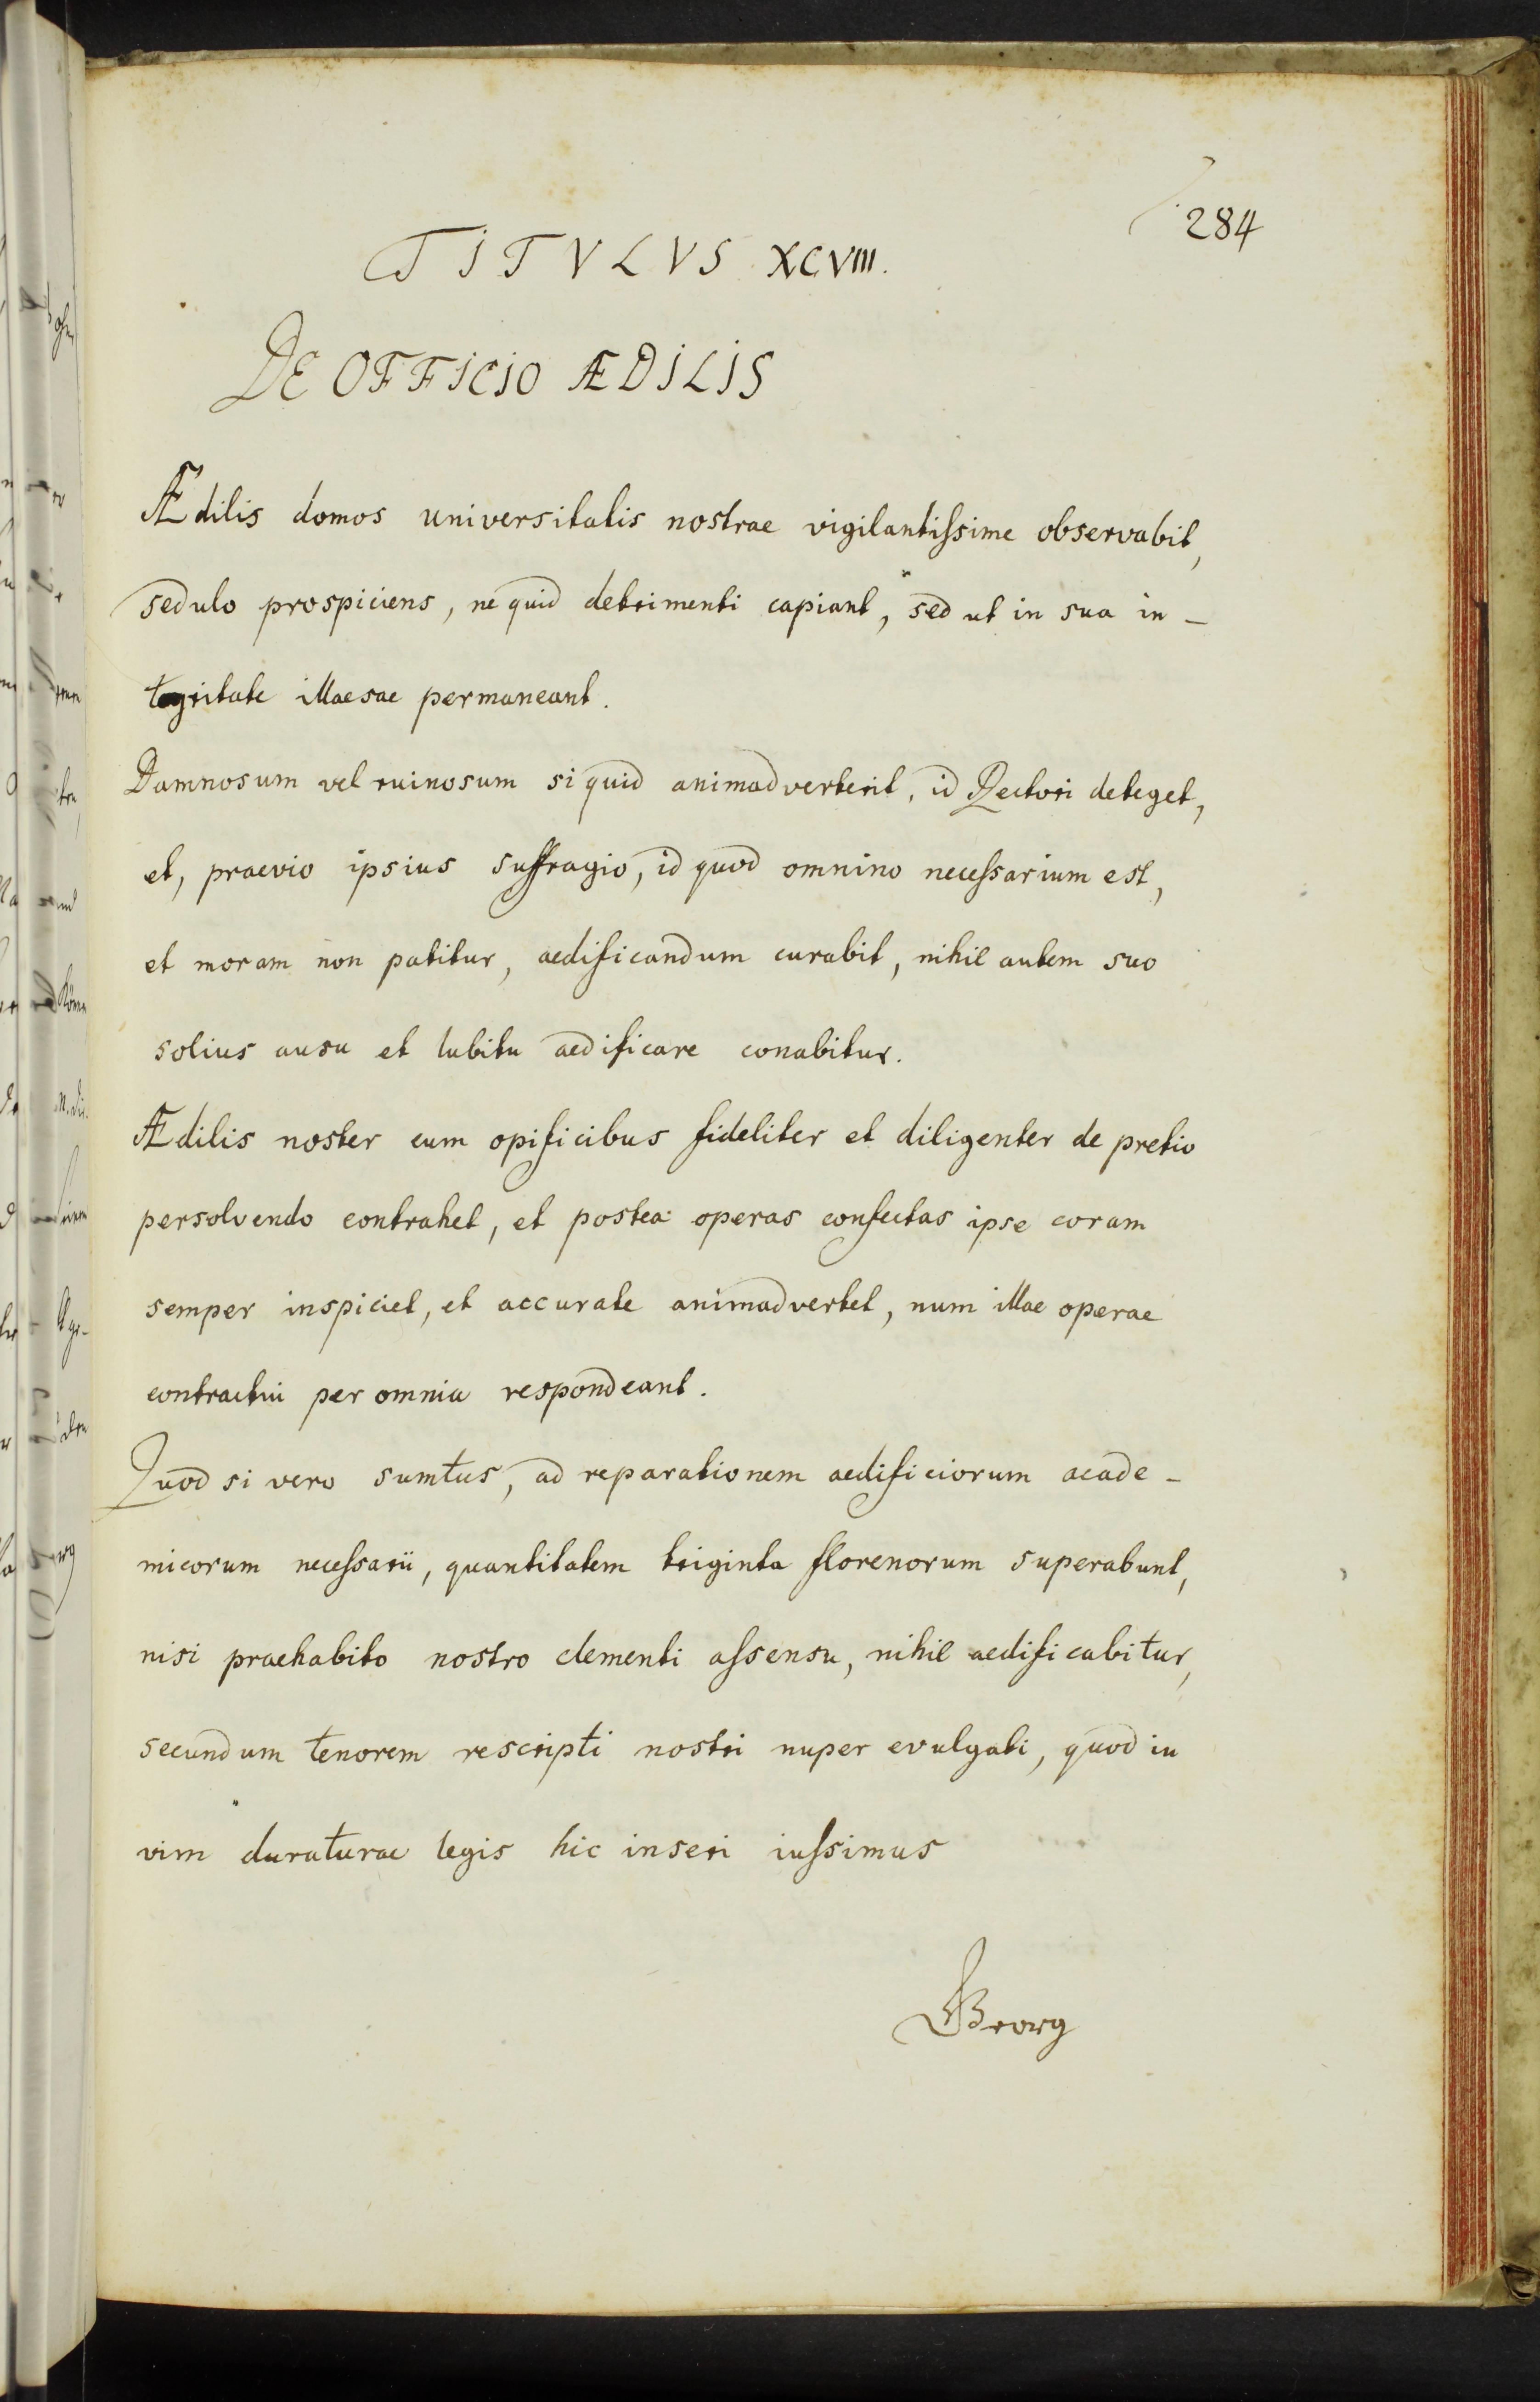 284
TITVLVS XCVIII.
DE OFFICIO ÆDILIS
Ædilis domos universitatis nostrae vigilantiſsime observabit,
sedulo prospiciens, ne quid detrimenti capiant, sed ut in sua in-
tegritate illaesae permaneant.
Damnosum vel ruinosum si quid animadverterit, id Rectori deteget,
et, praevio ipsius suffragio, id quod omnino neceſsarium est,
et moram non patitur, aedificandum curabit, nihil autem suo
solius ausu et lubitu aedificare conabitur.
Ædilis noster cum opificibus fideliter et diligenter de pretio
persolvendo contrahet, et postea operas confectas ipse coram
semper inspiciet, et accurate animadvertet, num illae operae
contractui per omnia respondeant.
Quod si vero sumtus, ad reparationem aedificiorum acade-
micorum neceſsarii, quantitatem triginta florenorum superabunt,
nisi praehabito nostro clementi aſsensu, nihil aedificabitur,
secundum tenorem rescripti nostri nuper evulgati, quod in
vim duraturae legis hic inseri iuſsimus
Georg